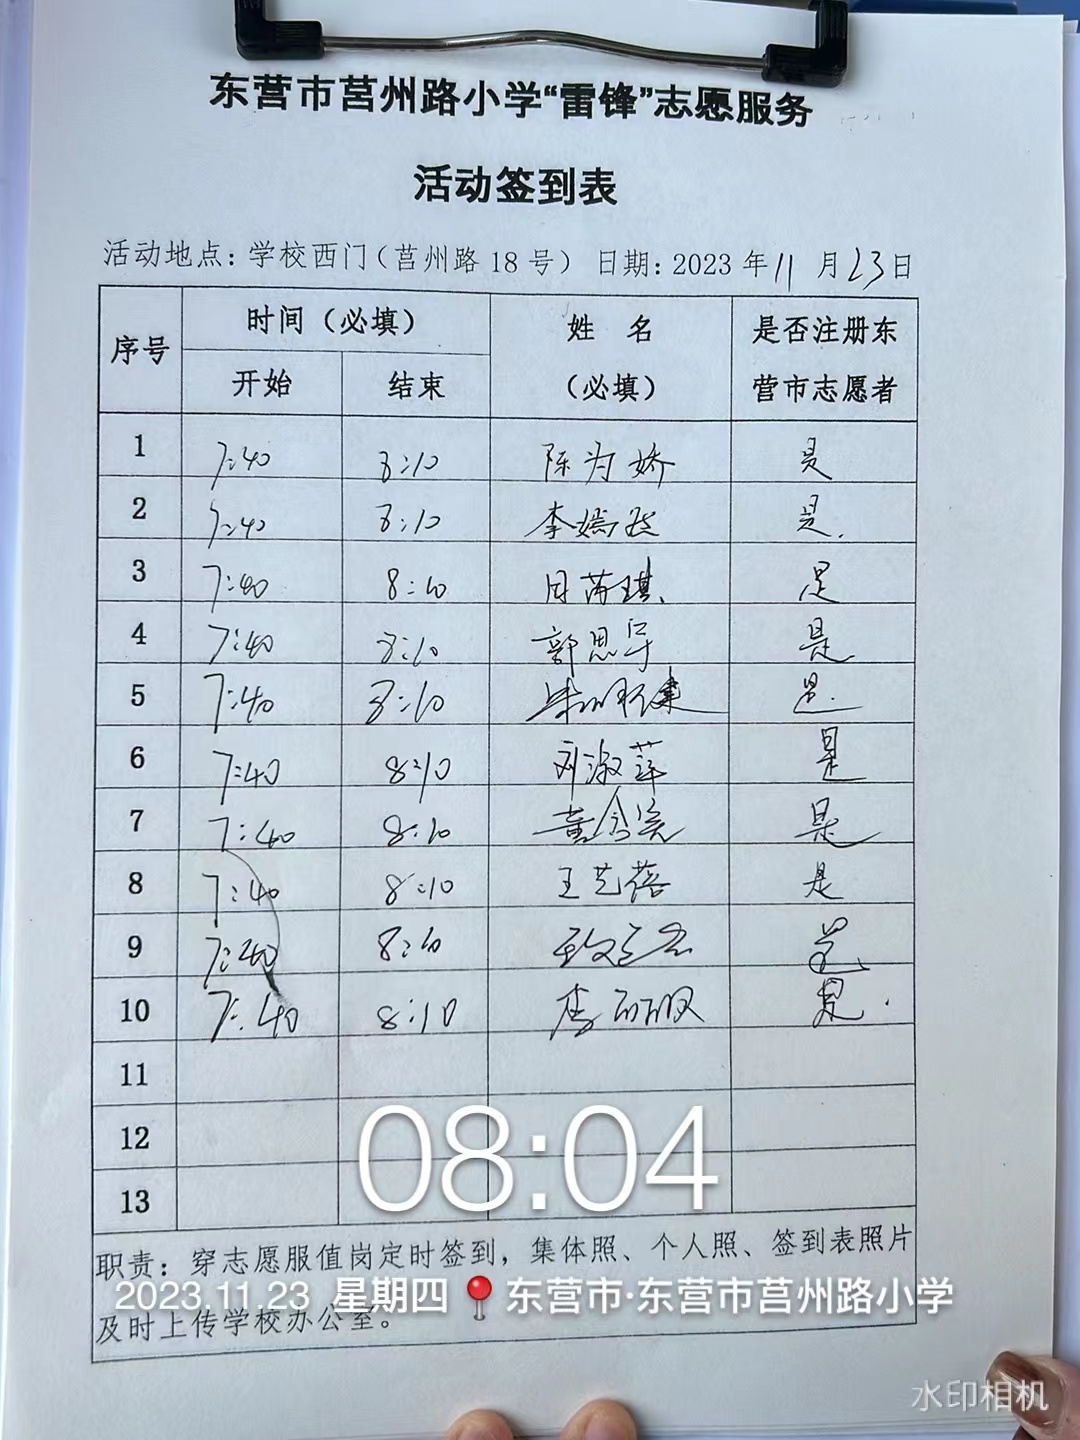 东营市莒州路小学“雷锋”志愿服务
活动签到表
活动地点：学校西门（莒州路 18 号） 日期：2023 年 11 月 23 日
序号 时间（必填） 姓 名 （必填） 是否注册东营市志愿者
开始 结束
1 7:40 8:10 陈为娇 是
2 7:40 8:10 李嫣然 是.
3 7:40 8:10 是
4 7:40 8:10 郭思宇 是
5 7:40 8:10 是.
6 7:40 8:10 刘淑萍 是
7 7:40 8:10 是
8 7:40 8:10 王艺蓓 是
9 7:40 8:10 是
10 7:40 8:10 是.
11
12
13
08:04
职责：穿志愿服值岗定时签到，集体照、个人照、签到表照片
2023.11.23 星期四 东营市·东营市莒州路小学
及时上传学校办公室。
水印相机